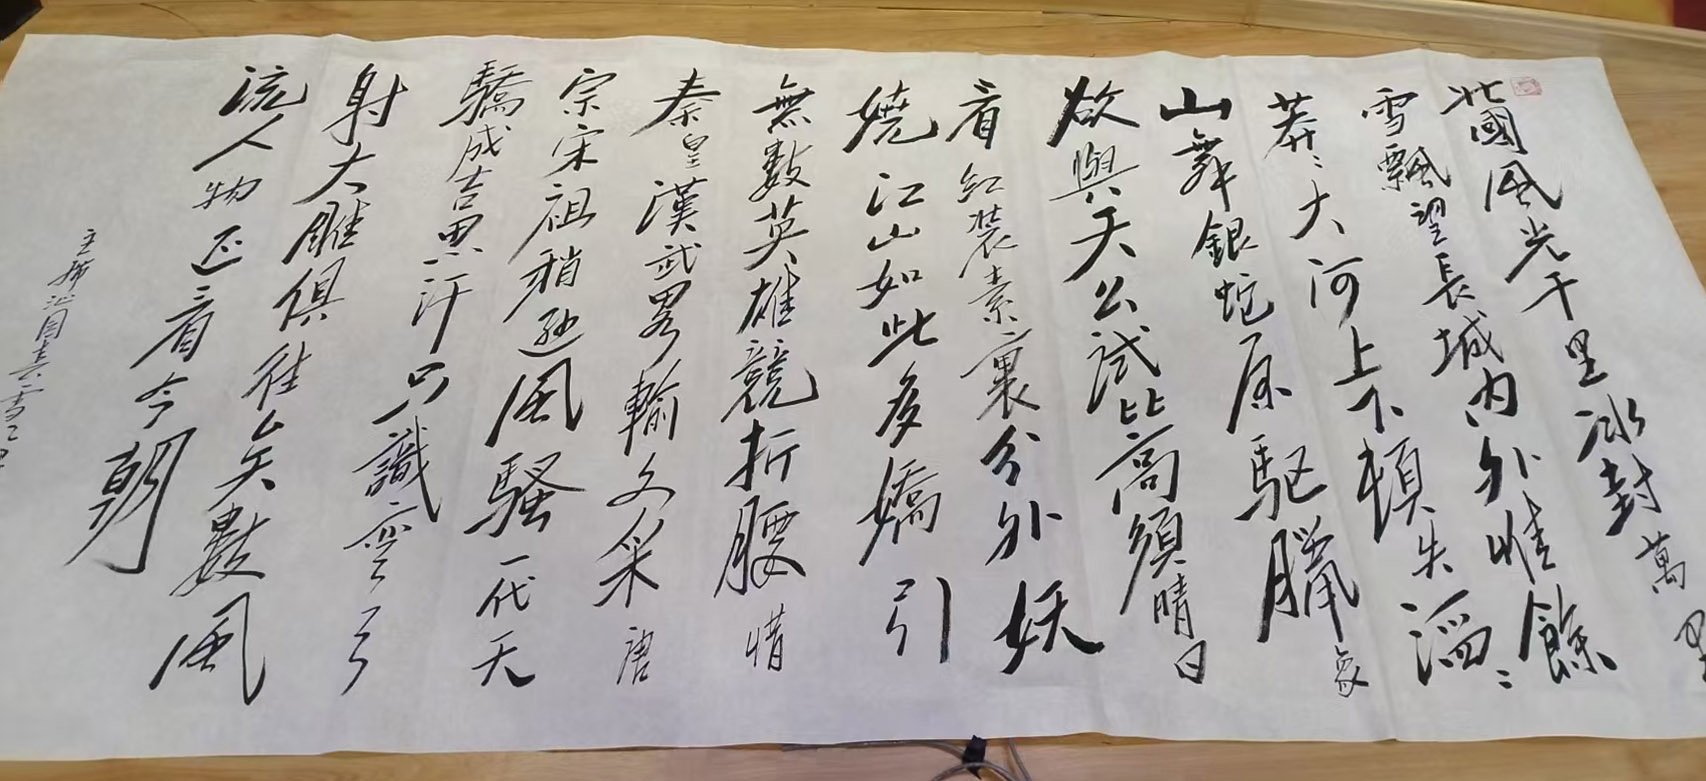 北國風光千里冰封萬里
雪飄望長城内外惟餘
莽〻大河上下頓失滔〻
山舞銀蛇原驱臘象
欲與天公試比高須晴日
看紅裝素裹分外妖
嬈江山如此多嬌引
無數英雄競折腰惜
秦皇漢武畧輸文采唐
宗宋祖稍遜風騷一代天
驕成吉思汗只識彎弓
射大雕俱往矣數風
流人物还看今朝
主席沁园春雪